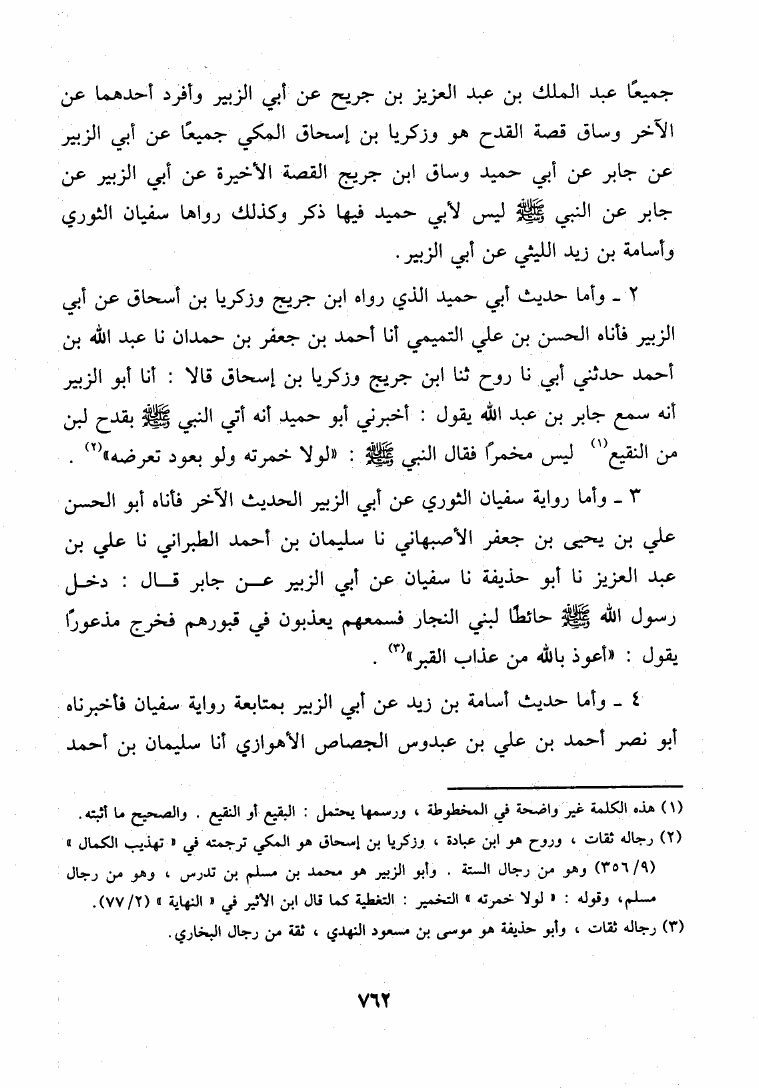 جميعًا عبد الملك بن عبد العزيز بن جريح عن أبي الزبير وأفرد أحدهما عن
الآخر وساق قصة القدح هو وزكريا بن إسحاق المكي جميعًا عن أبي الزبير
عن جابر عن أبي حميد وساق ابن جريج القصة الأخيرة عن أبي الزبير عن
جابر عن النبي ﷺ ليس لأبي حميد فيها ذكر وكذلك رواها سفيان الثوري
وأسامة بن زيد الليثي عن أبي الزبير.
٢ ـ وأما حديث أبي حميد الذي رواه ابن جريج وزكريا بن أسحاق عن أبي
الزبير فأناه الحسن بن علي التميمي أنا أحمد بن جعفر بن حمدان نا عبد الله بن
أحمد حدثني أبي نا روح ثنا ابن جريج وزكريا بن إسحاق قالا : أنا أبو الزبير
أنه سمع جابر بن عبد الله يقول : أخبرني أبو حميد أنه أتي النبي ﷺ بقدح لبن
من النقيع(١) ليس مخمرًا فقال النبي ﷺ : «لولا خمرته ولو بعود تعرضه»(٢) .
٣ ـ وأما رواية سفيان الثوري عن أبي الزبير الحديث الآخر فأناه أبو الحسن
علي بن يحيى بن جعفر الأصبهاني نا سليمان بن أحمد الطبراني نا علي بن
عبد العزيز نا أبو حذيفة نا سفيان عن أبي الزبير عــن جابر قــال : دخــل
رسول الله ﷺ حائطًا لبني النجار فسمعهم يعذبون في قبورهم فخرج مذعورًا
يقول : «أعوذ بالله من عذاب القبر»(٣) .
٤ ـ وأما حديث أسامة بن زيد عن أبي الزبير بمتابعة رواية سفيان فأخبرناه
أبو نصر أحمد بن علي بن عبدوس الجصاص الأهوازي أنا سليمان بن أحمد
(١) هذه الكلمة غير واضحة في المخطوطة ، ورسمها يحتمل : البقيع أو النقيع . والصحيح ما أثبته.
(٢) رجاله ثقات ، وروح هو ابن عبادة ، وزكريا بن إسحاق هو المكي ترجمته في « تهذيب الكمال »
(٣٥٦/٩) وهو من رجال الستة . وأبو الزبير هو محمد بن مسلم بن تدرس ، وهو من رجال
مسلم، وقوله : « لولا خمرته » التخمير : التغطية كما قال ابن الأثير في « النهاية » (٧٧/٢).
(٣) رجاله ثقات ، وأبو حذيفة هو موسى بن مسعود النهدي ، ثقة من رجال البخاري.
٧٦٢